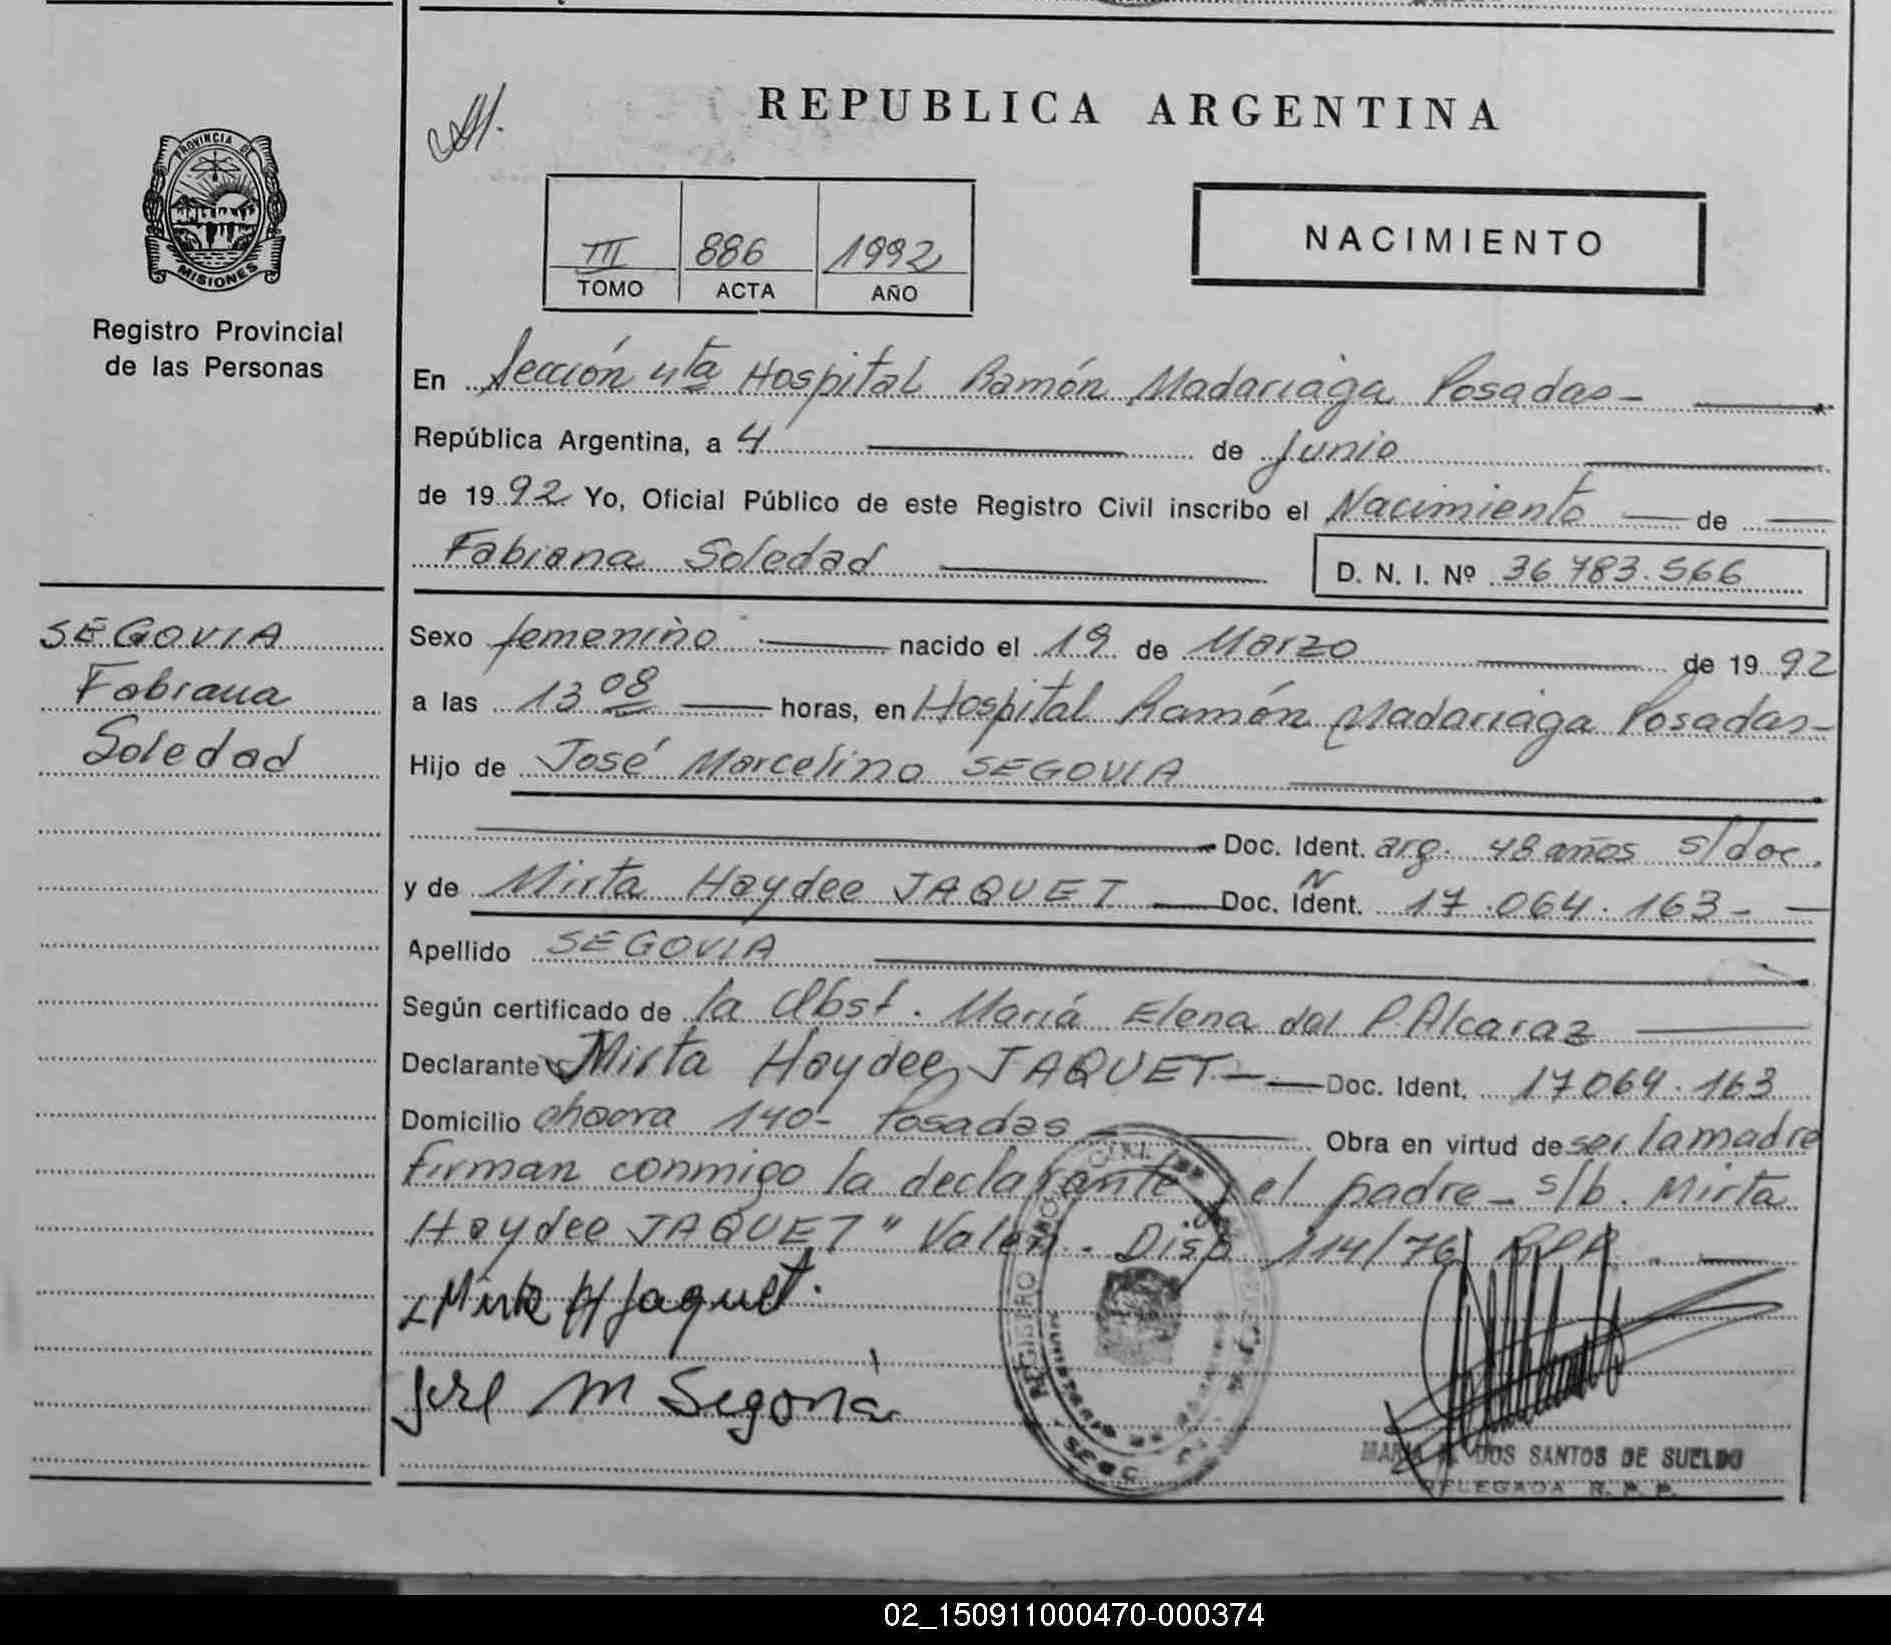 REPUBLICA ARGENTINA
PROVINCIA DE
MISIONES
Registro Provincial
de las Personas
III 886 1992
TOMO ACTA AÑO
NACIMIENTO
En Sección 4ta Hospital Ramón Madariaga Posadas-
República Argentina, a 4 de Junio
de 1992 Yo, Oficial Público de este Registro Civil inscribo el Nacimiento de
Fabiana Soledad D. N. I. Nº 36 783.566
SEGOVIA
Fabiana
Soledad
Sexo femenino nacido el 19 de Marzo de 1992
a las 13 08 horas, en Hospital Ramón Madariaga Posadas-
Hijo de José Marcelino SEGOVIA
Doc. Ident. arg. 48 años s/doc.
y de Mirta Haydee JAQUET Doc. Ident. 17.064.163-
Apellido SEGOVIA
Según certificado de la Obst. María Elena del P. Alcaraz
Declarante Mirta Haydee JAQUET- Doc. Ident. 17064.163
Domicilio chacra 140- Posadas Obra en virtud de ser la madre
firman conmigo la declarante y el padre- s/b. Mirta
Haydee JAQUET" Valen. Disp 114/76 RPP.
Mirta H Jaquet.
José M Segovia
REGISTRO
MARIA DOS SANTOS DE SUELDO
DELEGADA R. P. P.
02_150911000470-000374